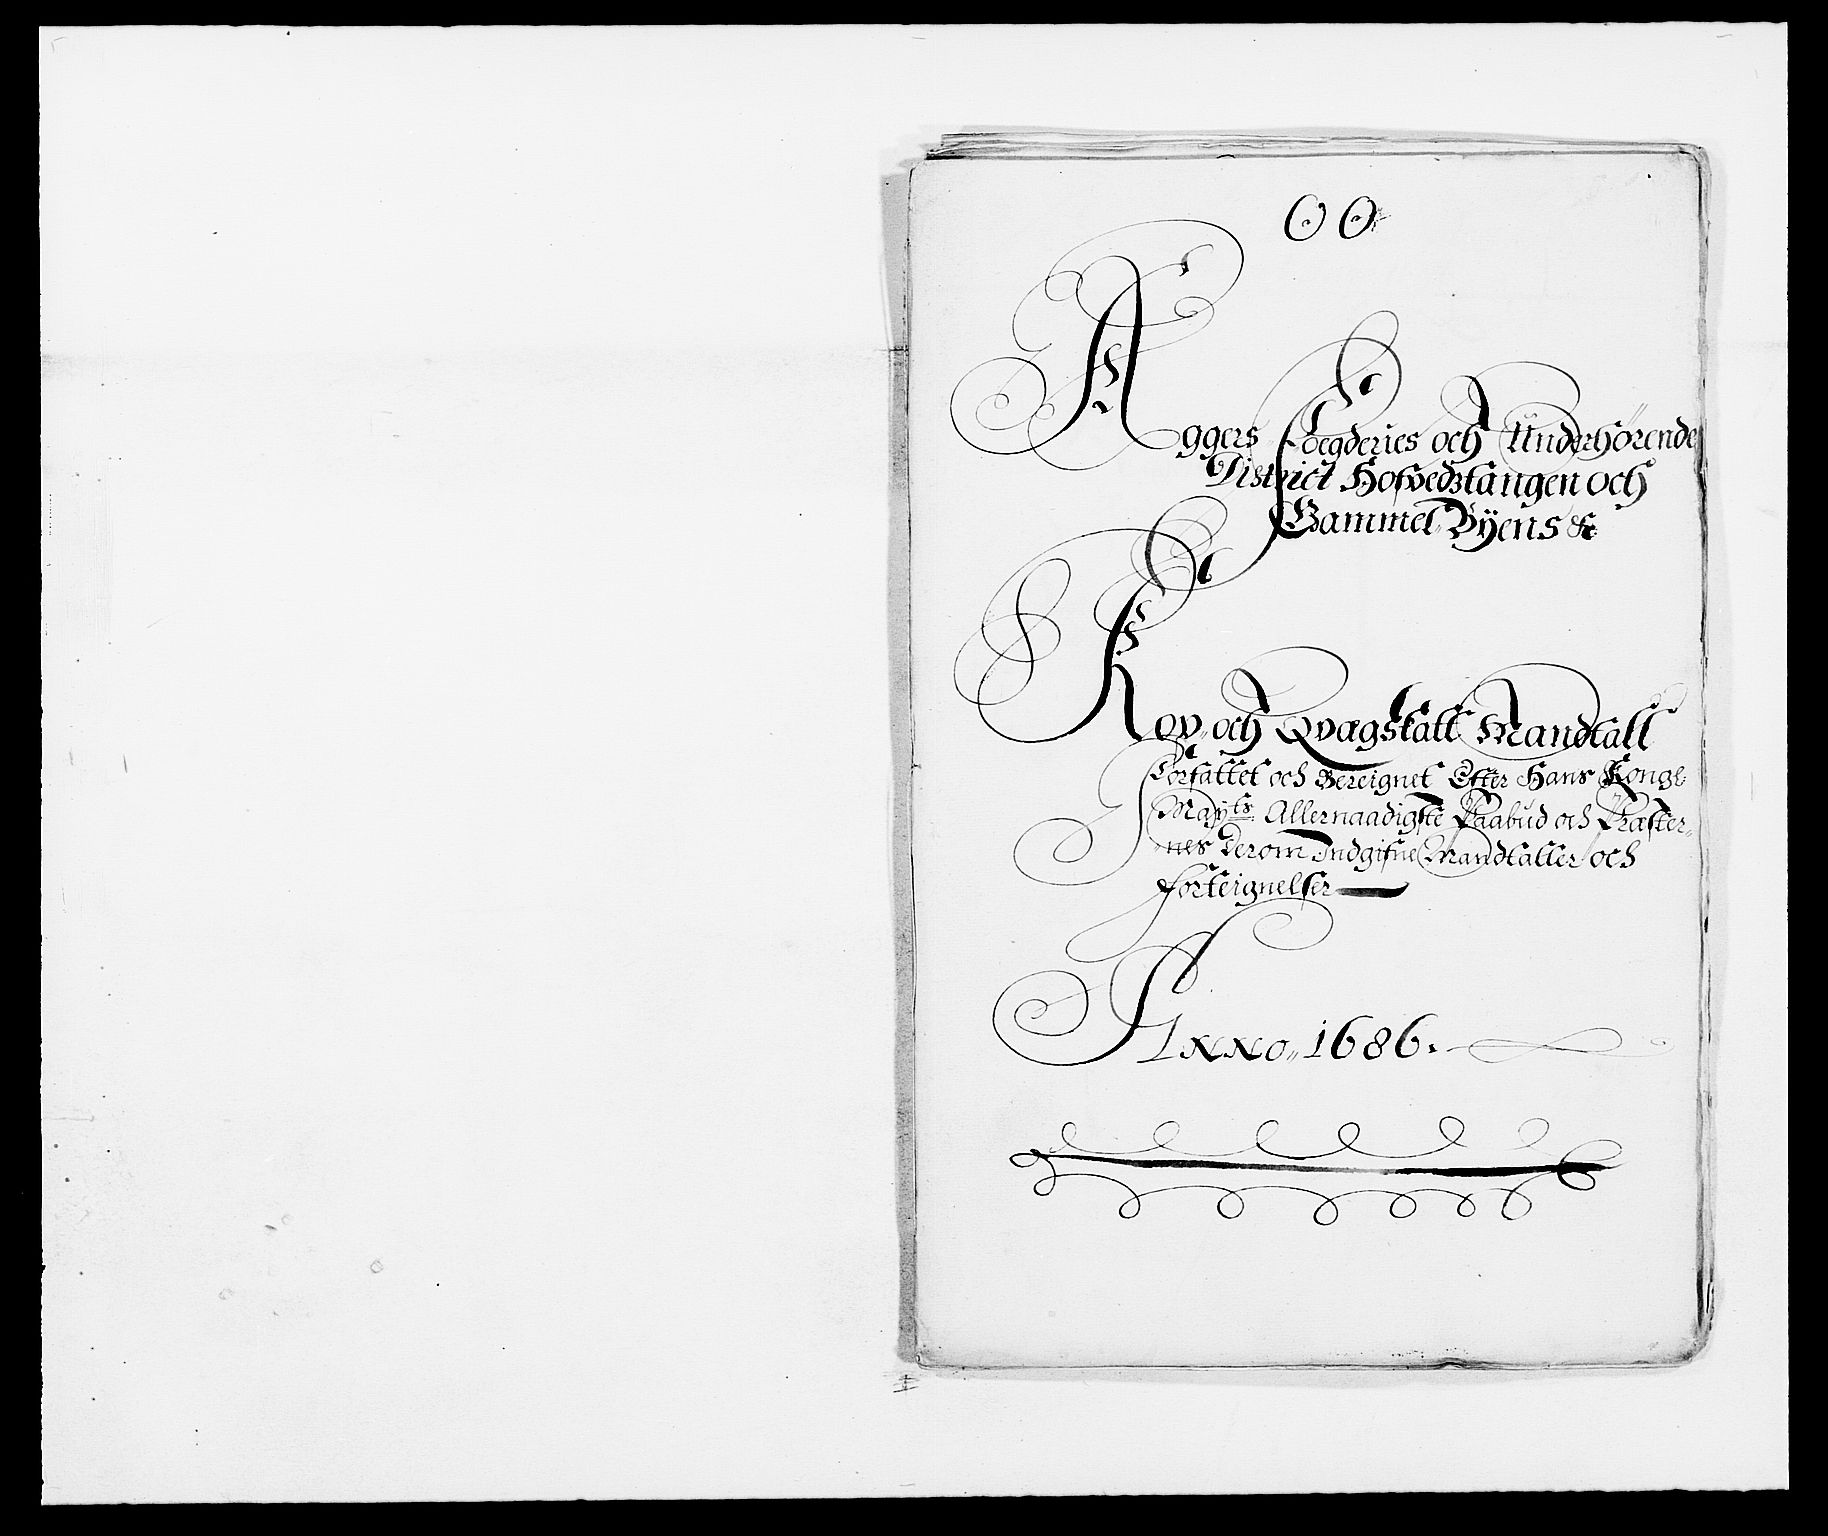 OO
Aggers Foegderies och Underhörende
District Hofvedztangen och
Gammel Byens &c
Kop och Qvægskatt Mandtall
Forfattet och Bereignet Efter Hans Konge
Mayts Allernaadigste Paabud och Præster,,
,,nes Derom Indgifne Mandtaller och
forteignelser
Anno,, 1686.